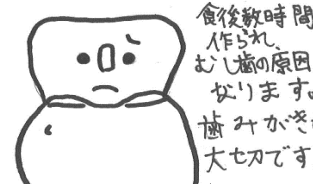 食後数時間
作られ、
むし歯の原因
なります。
歯みがきが
大切です